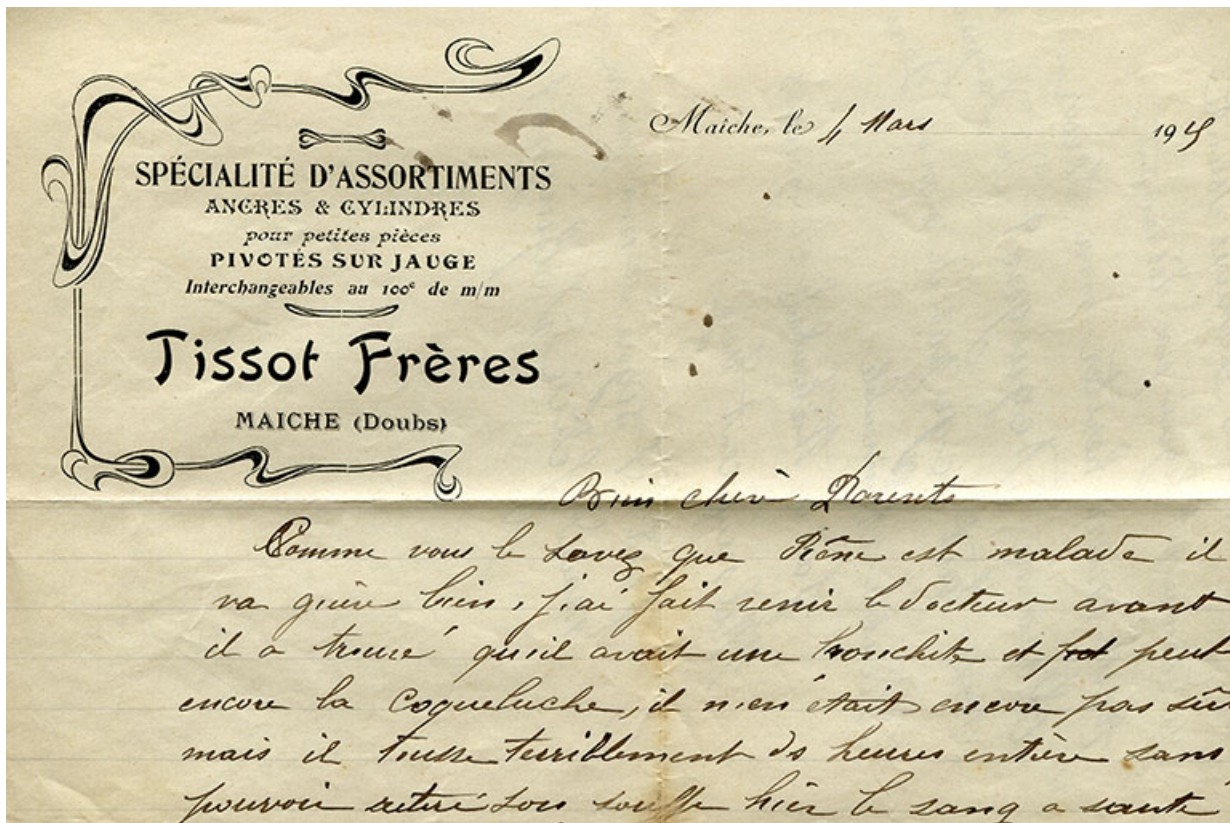 SPÉCIALITÉ D'ASSORTIMENTS
ANCRES & CYLINDRES
pour petites pièces
PIVOTÉS SUR JAUGE
Interchangeables au 100e de m/m
Tissot Frères
MAICHE (Doubs)
Maîche, le 4 Mars 19
chers Parents
Comme vous le savez que est malade il
va guère bien, j'ai fait venir le docteur avant
il a trouvé qu'il avait une bronchite et peut
encore la coqueluche, il n'en était encore pas sûr
mais il tousse terriblement ds heures entière sans
pouvoir retiré son souffle hier le sang a sauté